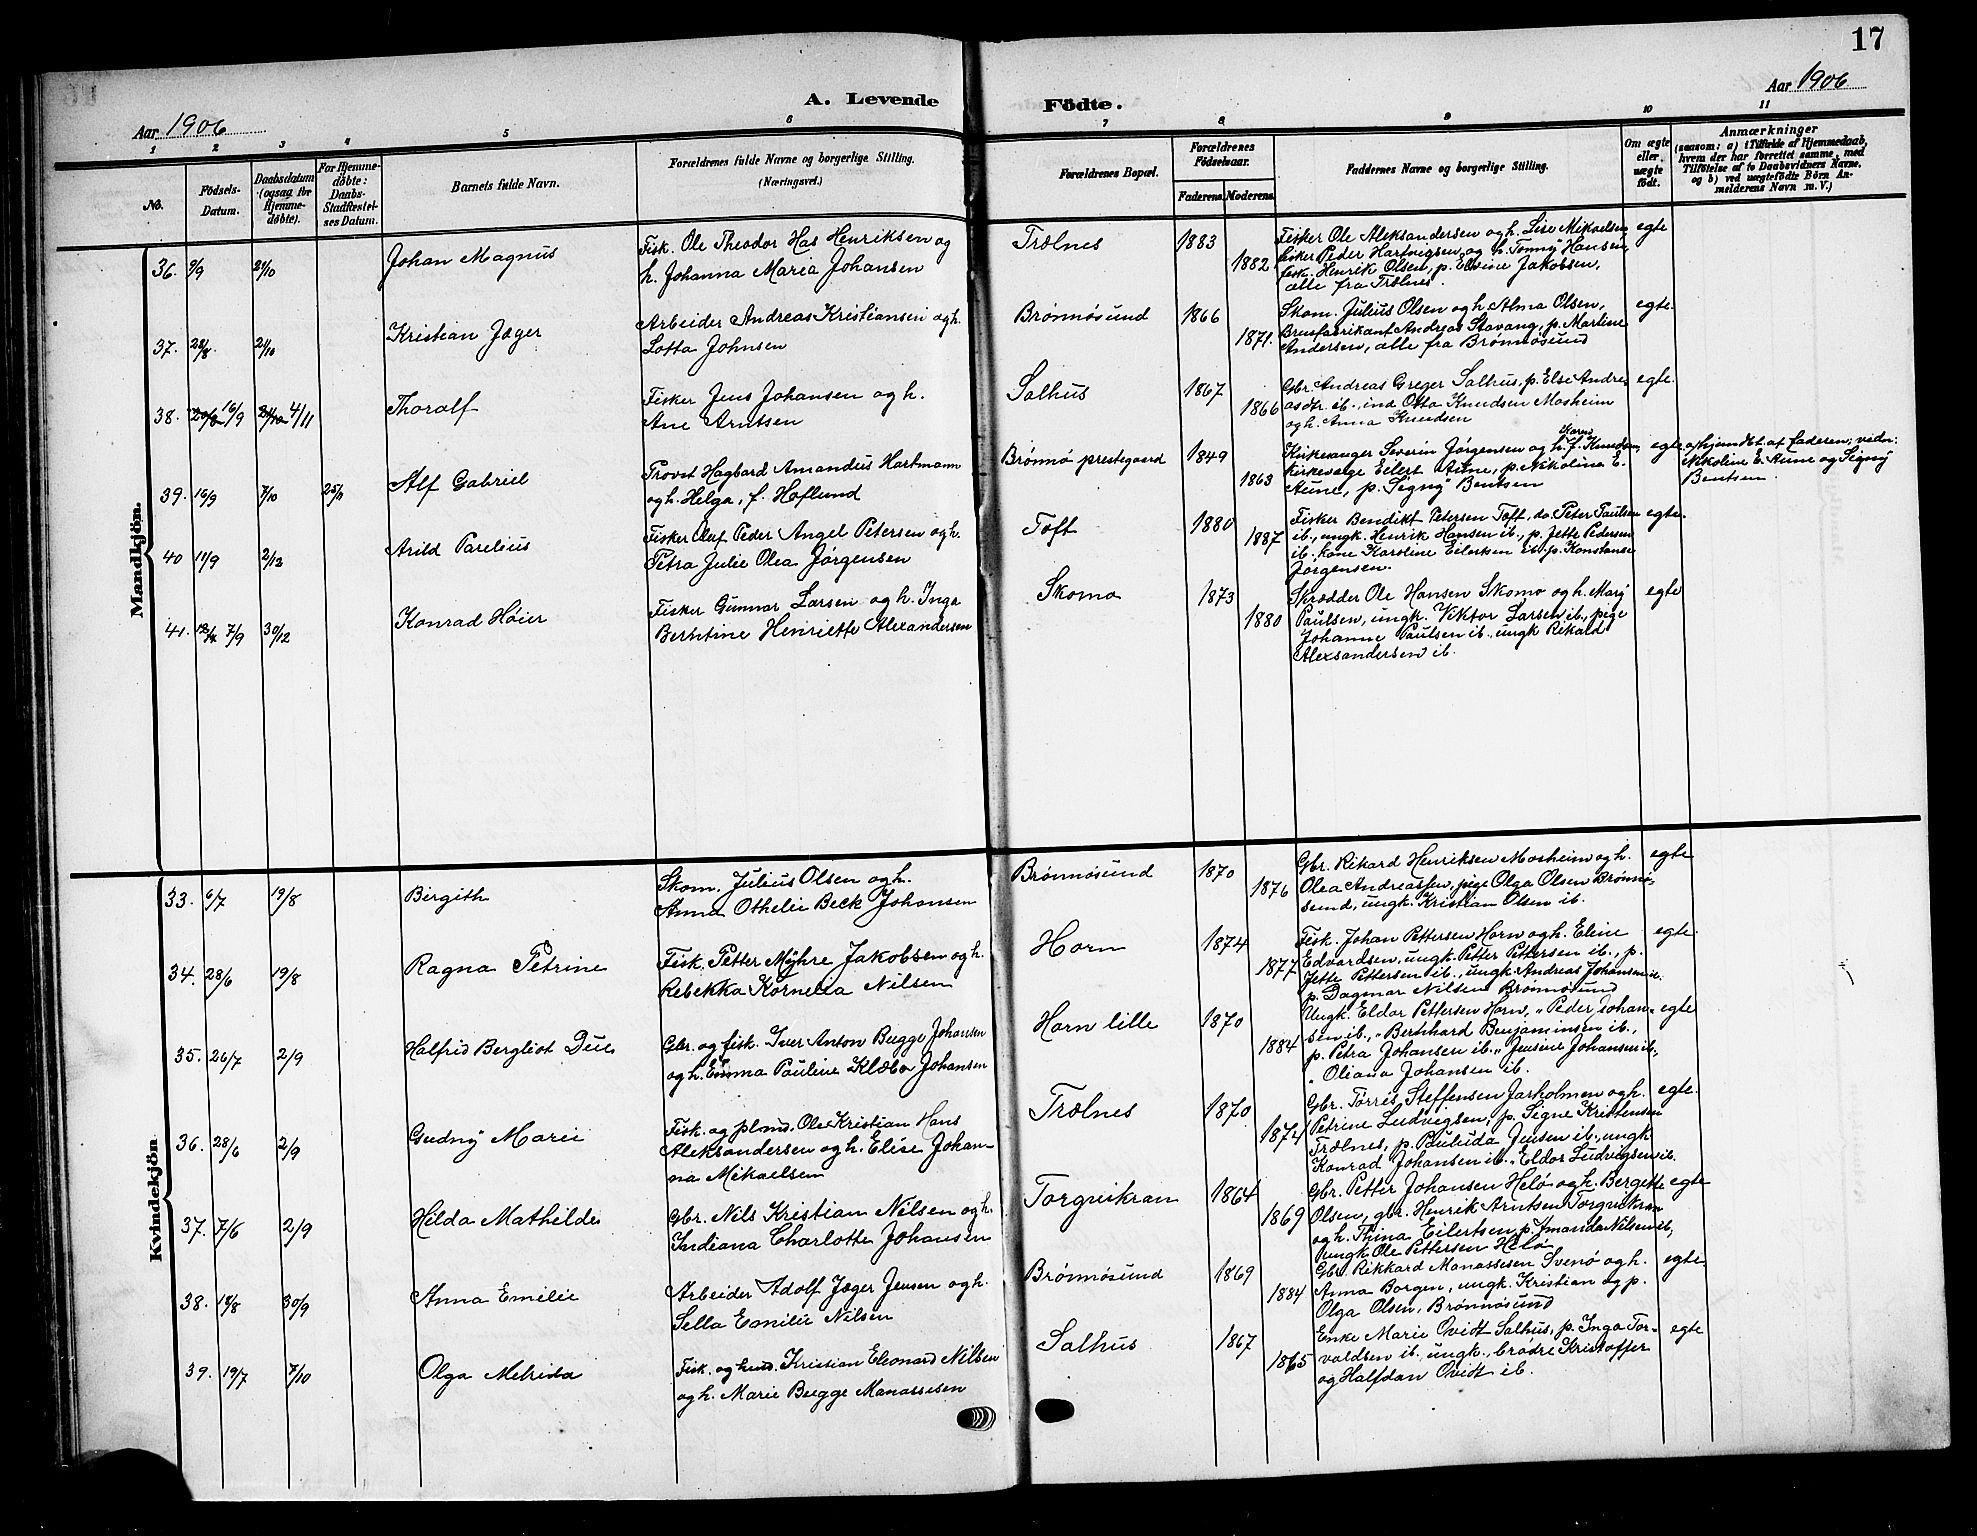 17
A. Levende Födte.
Aar 1906
Aar 1906
1 2 3 4 5 6 7 8 9 10 11
No.
Födsels-Datum.
Daabsdatum (ogsaa for Hjemmedøbte).
For Hjemmedöbte: Daabs-Stadfæstelses Datum.
Barnets fulde Navn.
Forældrenes fulde Navne og borgerlige Stilling. (Næringsvei.)
Forældrenes Bopæl.
Forældrenes Födselsaar.
Faderens. Moderens.
Faddernes Navne og borgerlige Stilling.
Om ægte eller uægte födt.
Anmærkninger (saasom: a) i Tilfælde af Hjemmedaab, hvem der har forrettet samme, med Tilföielse af to Daabsvidners Navne. og b) ved uægtefödte Börn Anmelderens Navn m. V.)
Mandkjön.
36. 9/9 21/10 Johan Magnus
Fisk. Ole Theodor Has Henriksen og
h. Johanna Maria Johansen
Trælnes 1883 1882
Fisker Ole Aleksandersen og h. Lise Mikaelsen
fisker Peder Hartvigsen og h. Tomny Hansen
fisk. Henrik Olsen, p. Elvine Jakobsen,
alle fra Trælnes.
egte
37. 28/8 21/10 Kristian Jæger
Arbeider Andreas Kristiansen og h.
Lotta Johnsen
Brønnøsund 1866 1871.
Skom. Julius Olsen og h. Alma Olsen,
Brusfabrikant Andreas Stavang, p. Martine
Andersen, alle fra Brønnøsund
egte
38. 16/9 4/11 Thoralf
Fisker Jens Johansen og h.
Ane Arntsen
Salhus 1867 1866
Gbr. Andreas Greger Salhus, p. Else Andre
asdtr ib., ind Otto Knudsen Mosheim
og h. Anna Knudsen
egte
39. 16/9 7/10 25/11 Alf Gabriel
Provst Hagbard Amandus Hartmann
og h. Helga, f. Hoflund
Brønnø prestegaard 1849 1863
Karen
Kirkesanger Severin Jørgensen og h. f. Knudsen,
kirkeverge Eilert Aune, p. Nikoline E.
Aune, p. Signy Bentsen
egte
hjemdbt. af faderen; vidn:
Nikoline E. Aune og Signy
Bentsen.
40 11/9 2/12 Arild Parelius
Fisker Oluf Peder Angel Petersen og h.
Petra Julie Olea Jørgensen
Toft 1880 1887
Fisker Bendikt Petersen Toft, do. Peter Paulsen
ib., ungk. Henrik Hansen ib., p. Jette Pedersen
ib., kone Karoline Eilertsen ib. p. Konstanse
Jørgensen.
egte
41. 7/9 30/12 Konrad Høier
Fisker Gunnar Larsen og h. Inga
Berntine Henriette Alexandersen
Skomo 1873 1880
Skrædder Ole Hansen Skomo og h. Mary
Paulsen, ungk. Viktor Larsen ib., pige
Johanne Paulsen ib., ungk Rikard
Alexsandersen ib.
egte
Kvindekjön
33. 6/7 19/8 Bergith
Skom. Julius Olsen og h.
Anna Othelie Beck Johansen
Brønnøsund 1870 1876
Gbr. Rikard Henriksen Mosheim og h.
Olea Andreassen, pige Olga Olsen Brønnø-
sund, ungk. Kristian Olsen ib.
egte
34. 28/6 19/8 Ragna Petrine
Fisk. Petter Myhre Jakobsen og h.
Rebekka Kornelia Nilsen
Horn 1874 1877
Fisk. Johan Pettersen Horn og h. Eline
Edvardsen, ungk. Petter Pettersen ib., p.
Jette Pettersen ib., ungk. Andreas Johansen ib.
p. Dagmar Nilsen Brønnøsund
egte
35. 26/7 2/9 Halfrid Bergliot Due
Gbr. og fisk. Iver Anton Bugge Johansen
og h. Emma Pauline Klæbo Johansen
Horn lille 1870 1884
Ungk. Eldor Pettersen Horn, " Peder Johan-
sen ib., " Bernhard Benjaminsen ib.,
p. Petra Johansen ib. " Jensine Johansen ib.,
" Oliana Johansen ib.
egte
36. 28/6 2/9 Gudny Marie
Fisk. og plmd. Ole Kristian Hans
Aleksandersen og h. Elise Johan-
na Mikaelsen
Trælnes 1870 1874
Gbr. Torris Steffensen Jarholmen og h.
Petrine Ludvigsen, p. Signe Kristensen
Trælnes, p. Paulida Jensen ib., ungk
Konrad Johansen ib. " Eldor Ludvigsen ib.
egte
37. 7/6 2/9 Hilda Mathilde
Gbr. Nils Kristian Nilsen og h.
Indiana Charlotte Johansen
Torgvikran 1864 1869
Gbr. Petter Johansen Helø og h. Bergitte
Olsen, gbr. Henrik Arntsen Torgvikran
og h. Thina Eilertsen, p. Amanda Nilsen ib,
ungk Ole Pettersen Helø
egte
38. 18/8 30/9 Anna Emilie
Arbeider Adolf Jæger Jensen og h.
Sella Emilie Nilsen
Brønnøsund 1869 1884
Gbr. Rikkard Manassesen Svenø og h.
Anna Borgen, ungk. Kristian og p.
Olga Olsen, Brønnøsund
egte
39. 19/7 7/10 Olga Mekrida
Fisk. og hmd. Kristian Eleonard Nilsen
og h. Marie Bugge Manassesen
Salhus 1867 1865
Enke Marie Ovidt Salhus, p. Inga Tor-
valdsen ib., ungk., brødre Kristoffer
og Halfdan Ovidt ib.
egte